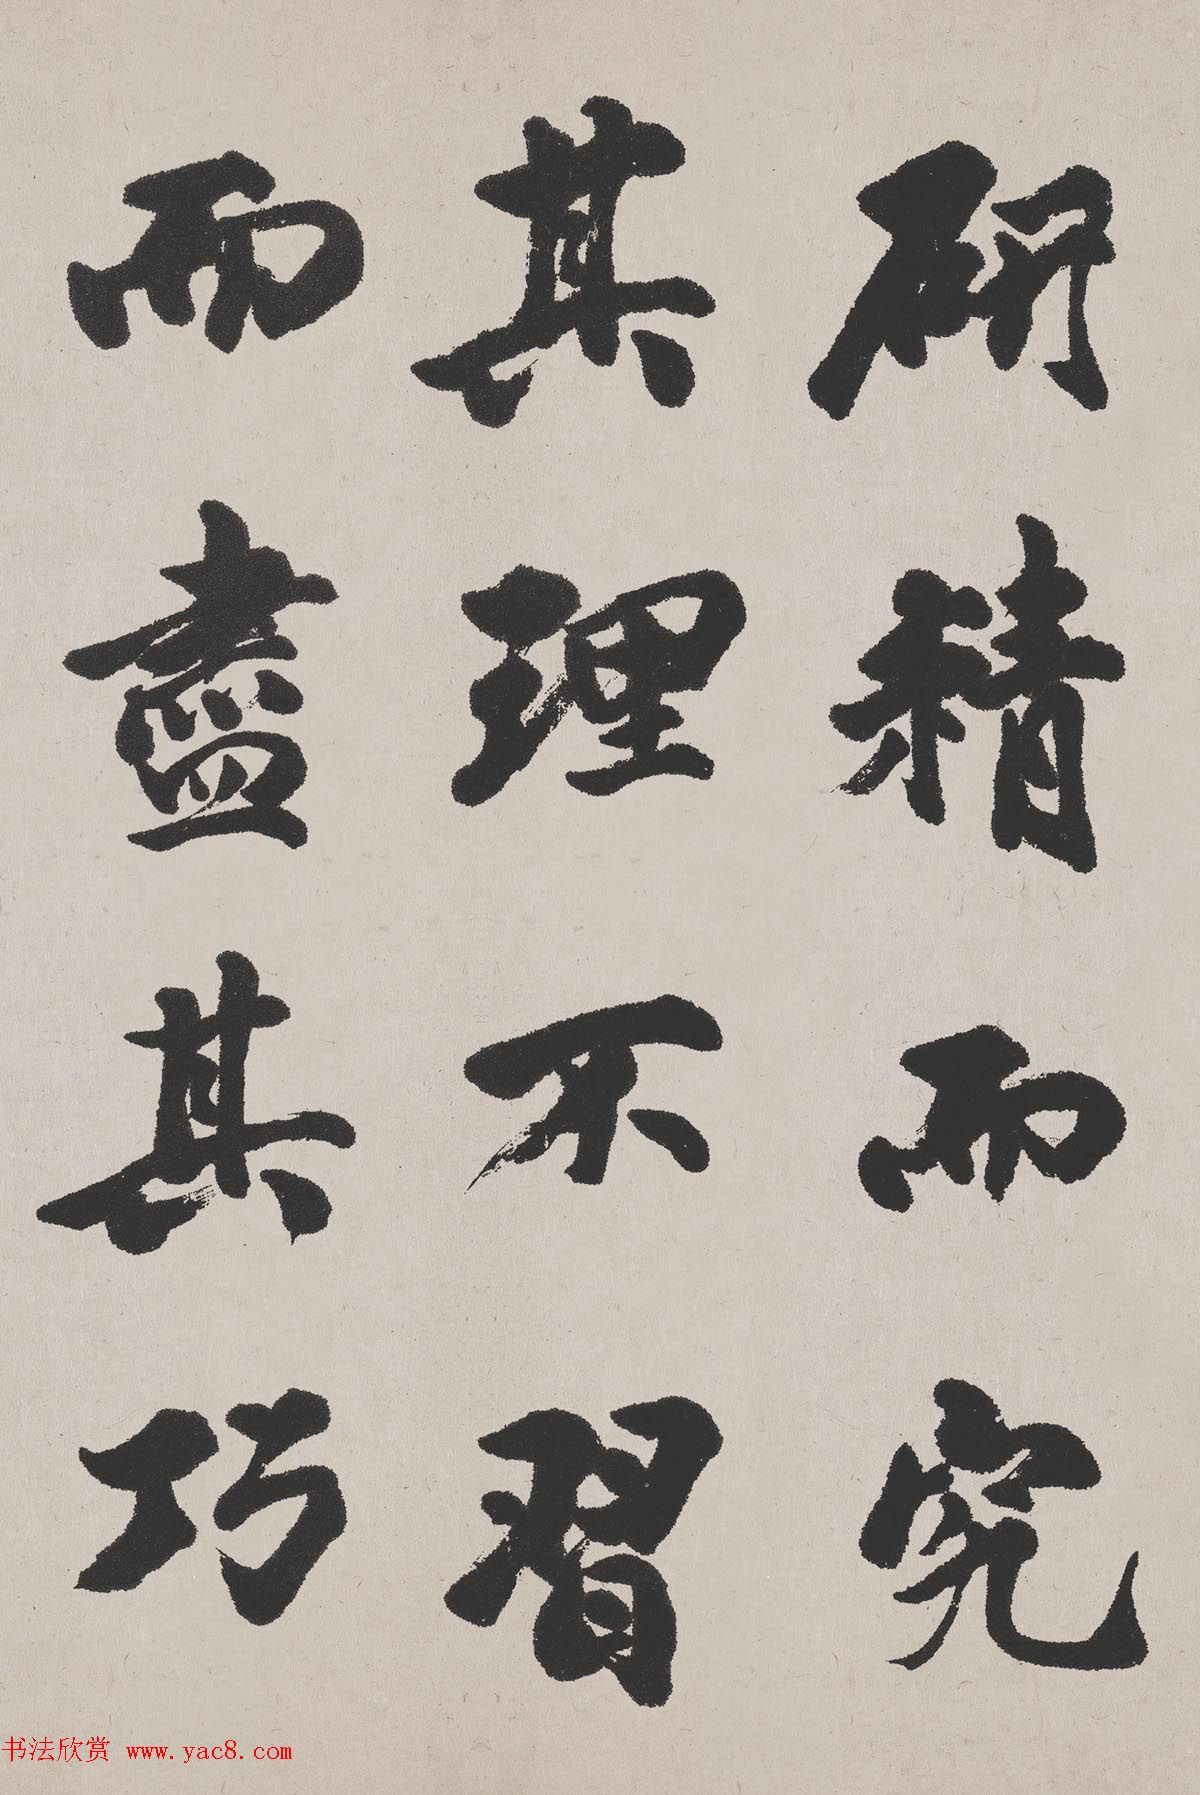 研精而究
其理不習
而盡其巧
书法欣赏 www.yac8.com